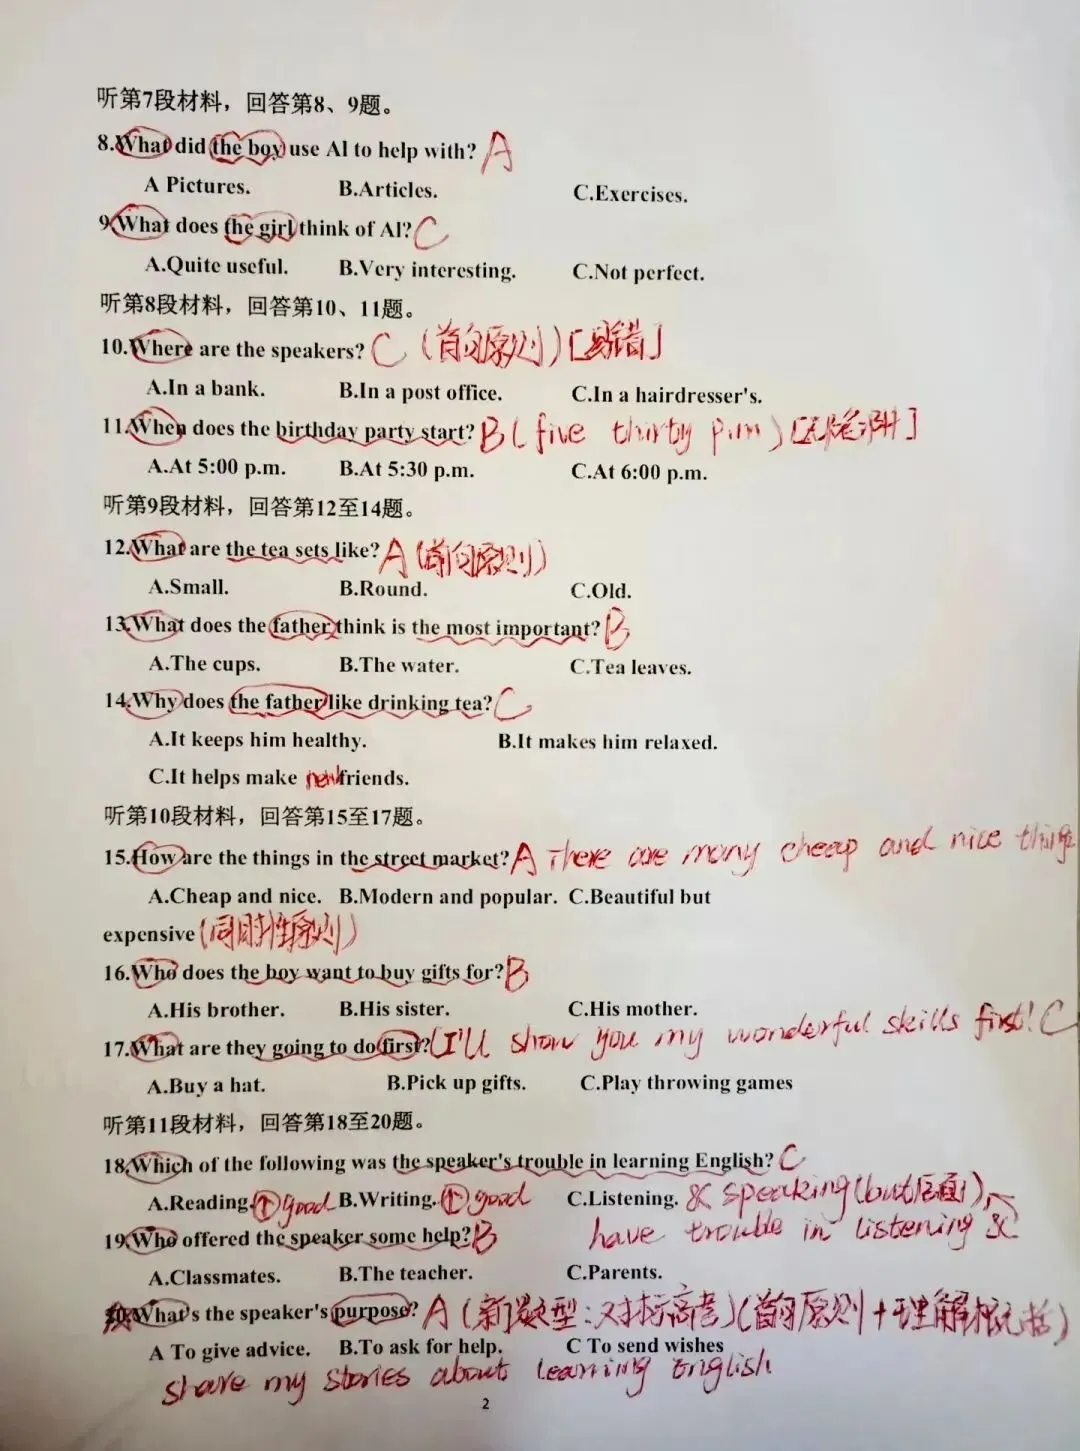 听第7段材料，回答第8、9题。
8.What did the boy use AI to help with? A
A Pictures. B.Articles. C.Exercises.
9.What does the girl think of AI? C
A.Quite useful. B.Very interesting. C.Not perfect.
听第8段材料，回答第10、11题。
10.Where are the speakers? C (首句原则) [易错]
A.In a bank. B.In a post office. C.In a hairdresser's.
11.When does the birthday party start? B (five thirty p.m)
A.At 5:00 p.m. B.At 5:30 p.m. C.At 6:00 p.m.
听第9段材料，回答第12至14题。
12.What are the tea sets like? A (首句原则)
A.Small. B.Round. C.Old.
13.What does the father think is the most important? B
A.The cups. B.The water. C.Tea leaves.
14.Why does the father like drinking tea? C
A.It keeps him healthy. B.It makes him relaxed.
C.It helps make new friends.
听第10段材料，回答第15至17题。
15.How are the things in the street market? A There are many cheap and nice things
A.Cheap and nice. B.Modern and popular. C.Beautiful but
expensive (同时性原则)
16.Who does the boy want to buy gifts for? B
A.His brother. B.His sister. C.His mother.
17.What are they going to do first? (I'll show you my wonderful skills first! C
A.Buy a hat. B.Pick up gifts. C.Play throwing games
听第11段材料，回答第18至20题。
18.Which of the following was the speaker's trouble in learning English? C
A.Reading. (↑) good B.Writing. (↑) good C.Listening. & speaking (but后面)
have trouble in listening &
19.Who offered the speaker some help? B
A.Classmates. B.The teacher. C.Parents.
What's the speaker's purpose? A (新题型:对标高考) (首句原则+理解概括)
A To give advice. B.To ask for help. C To send wishes
share my stories about learning English
2